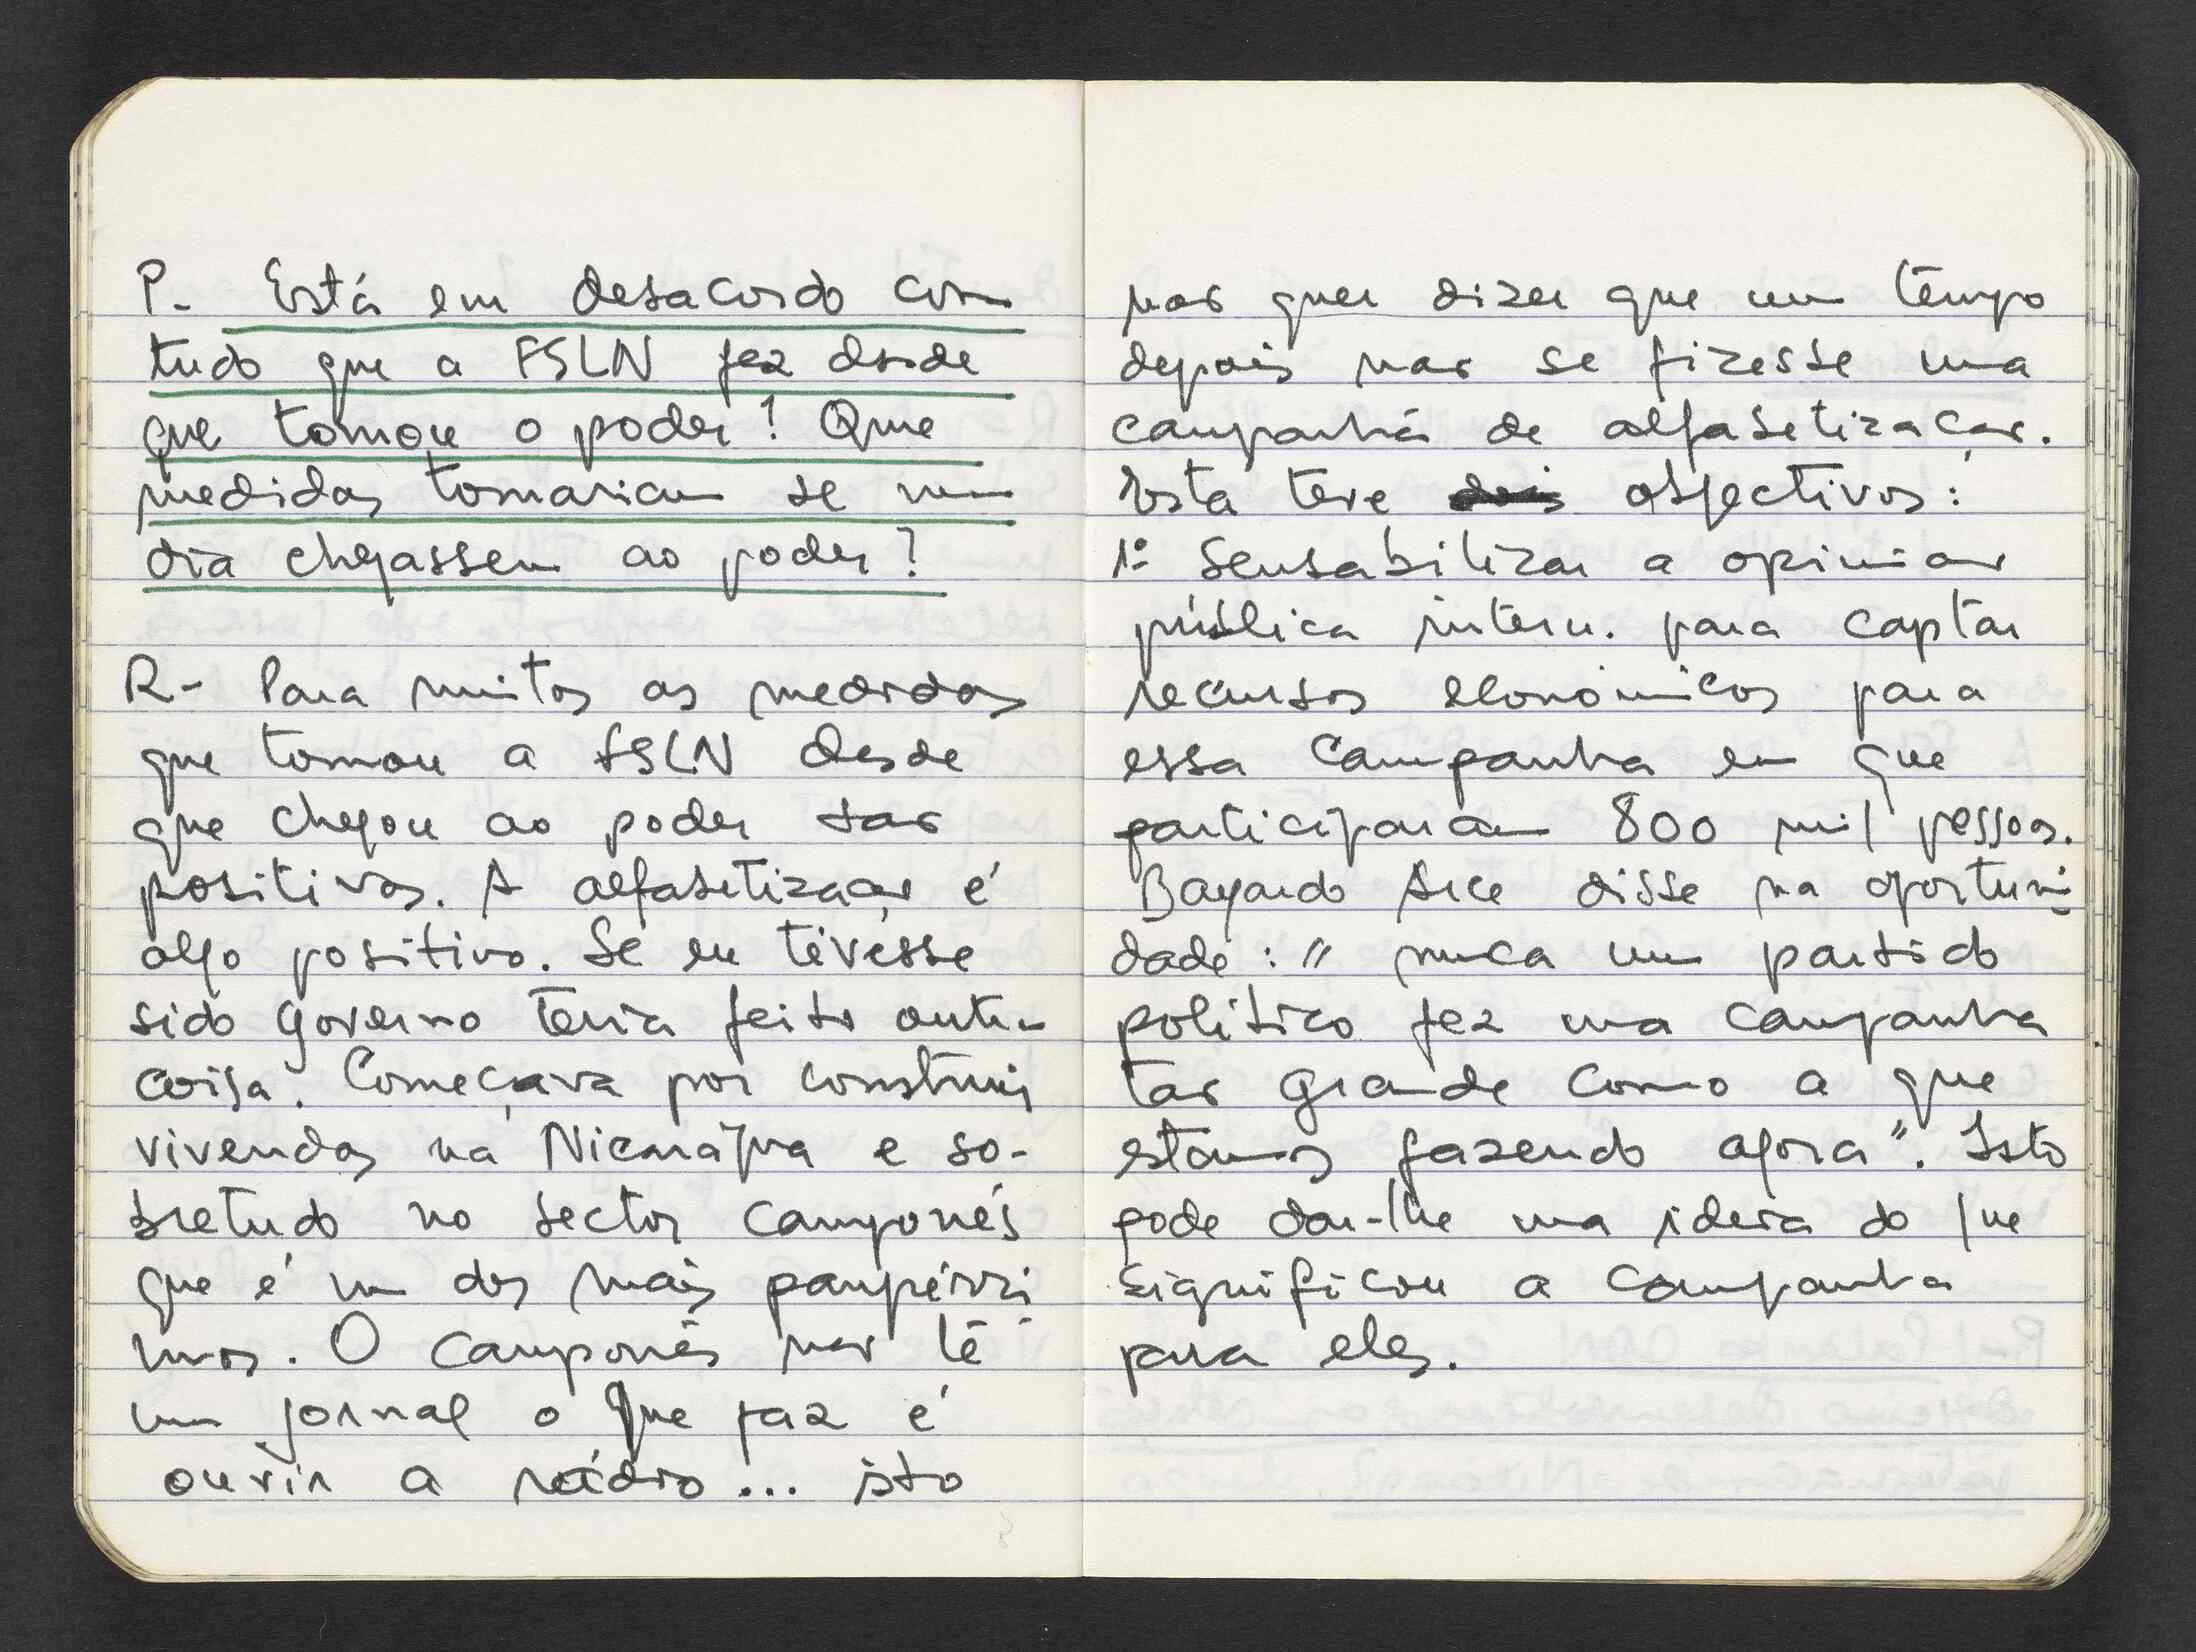 P- Está em desacordo com
tudo que a FSLN fez desde
que tomou o poder? Que
medidas tomariam se um
dia chegassem ao poder?
R- Para muitos as medidas
que tomou a FSLN desde
que chegou ao poder são
positivas. A alfabetização é
algo positivo. Se eu tivesse
sido governo teria feito outra
coisa. Começava por construir
vivendas na Nicarágua e so-
bretudo no sector camponês
que é um dos mais paupérri
mos. O camponês não lê
um jornal o que faz é
ouvir a rádio... isto
não quer dizer que um tempo
depois não se fizesse uma
campanha de alfabetização.
Esta teve dois objectivos:
1º Sensabilizar a opinião
pública intern. para captar
recursos económicos para
essa campanha em que
participaram 800 mil pessoas.
Bayardo Arce disse na oportuni
dade: "nunca um partido
político fez uma campanha
tão grande como a que
estamos fazendo agora". Isto
pode dar-lhe uma ideia do que
significou a campanha
para eles.